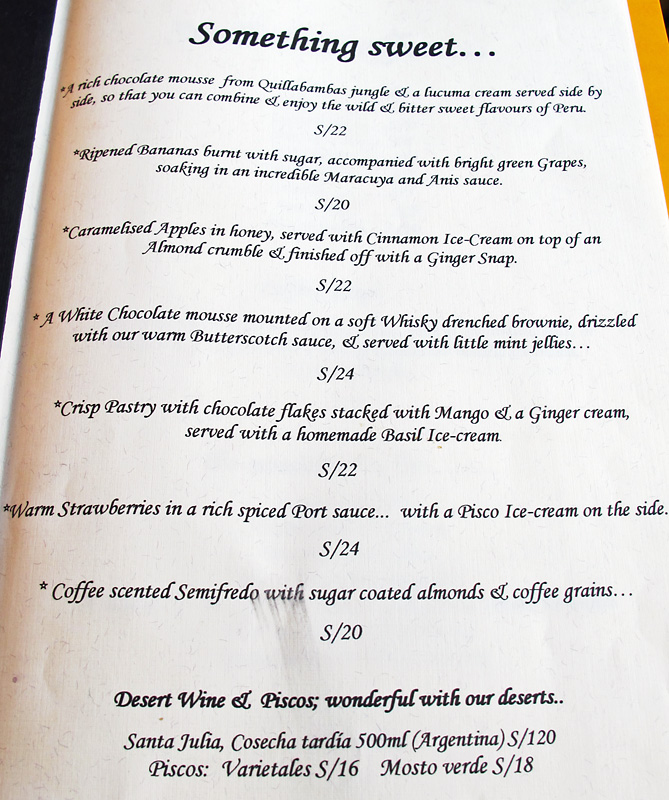 Something sweet...
*A rich chocolate mousse from Quillabambas jungle & a lucuma cream served side by
side, so that you can combine & enjoy the wild & bitter sweet flavours of Peru.
S/22
*Ripened Bananas burnt with sugar, accompanied with bright green Grapes,
soaking in an incredible Maracuya and Anis sauce.
S/20
*Caramelised Apples in honey, served with Cinnamon Ice-Cream on top of an
Almond crumble & finished off with a Ginger Snap.
S/22
* A White Chocolate mousse mounted on a soft Whisky drenched brownie, drizzled
with our warm Butterscotch sauce, & served with little mint jellies...
S/24
*Crisp Pastry with chocolate flakes stacked with Mango & a Ginger cream,
served with a homemade Basil Ice-cream.
S/22
*Warm Strawberries in a rich spiced Port sauce... with a Pisco Ice-cream on the side.
S/24
* Coffee scented Semifredo with sugar coated almonds & coffee grains...
S/20
Desert Wine & Piscos; wonderful with our deserts..
Santa Julia, Cosecha tardía 500ml (Argentina) S/120
Piscos: Varietales S/16 Mosto verde S/18